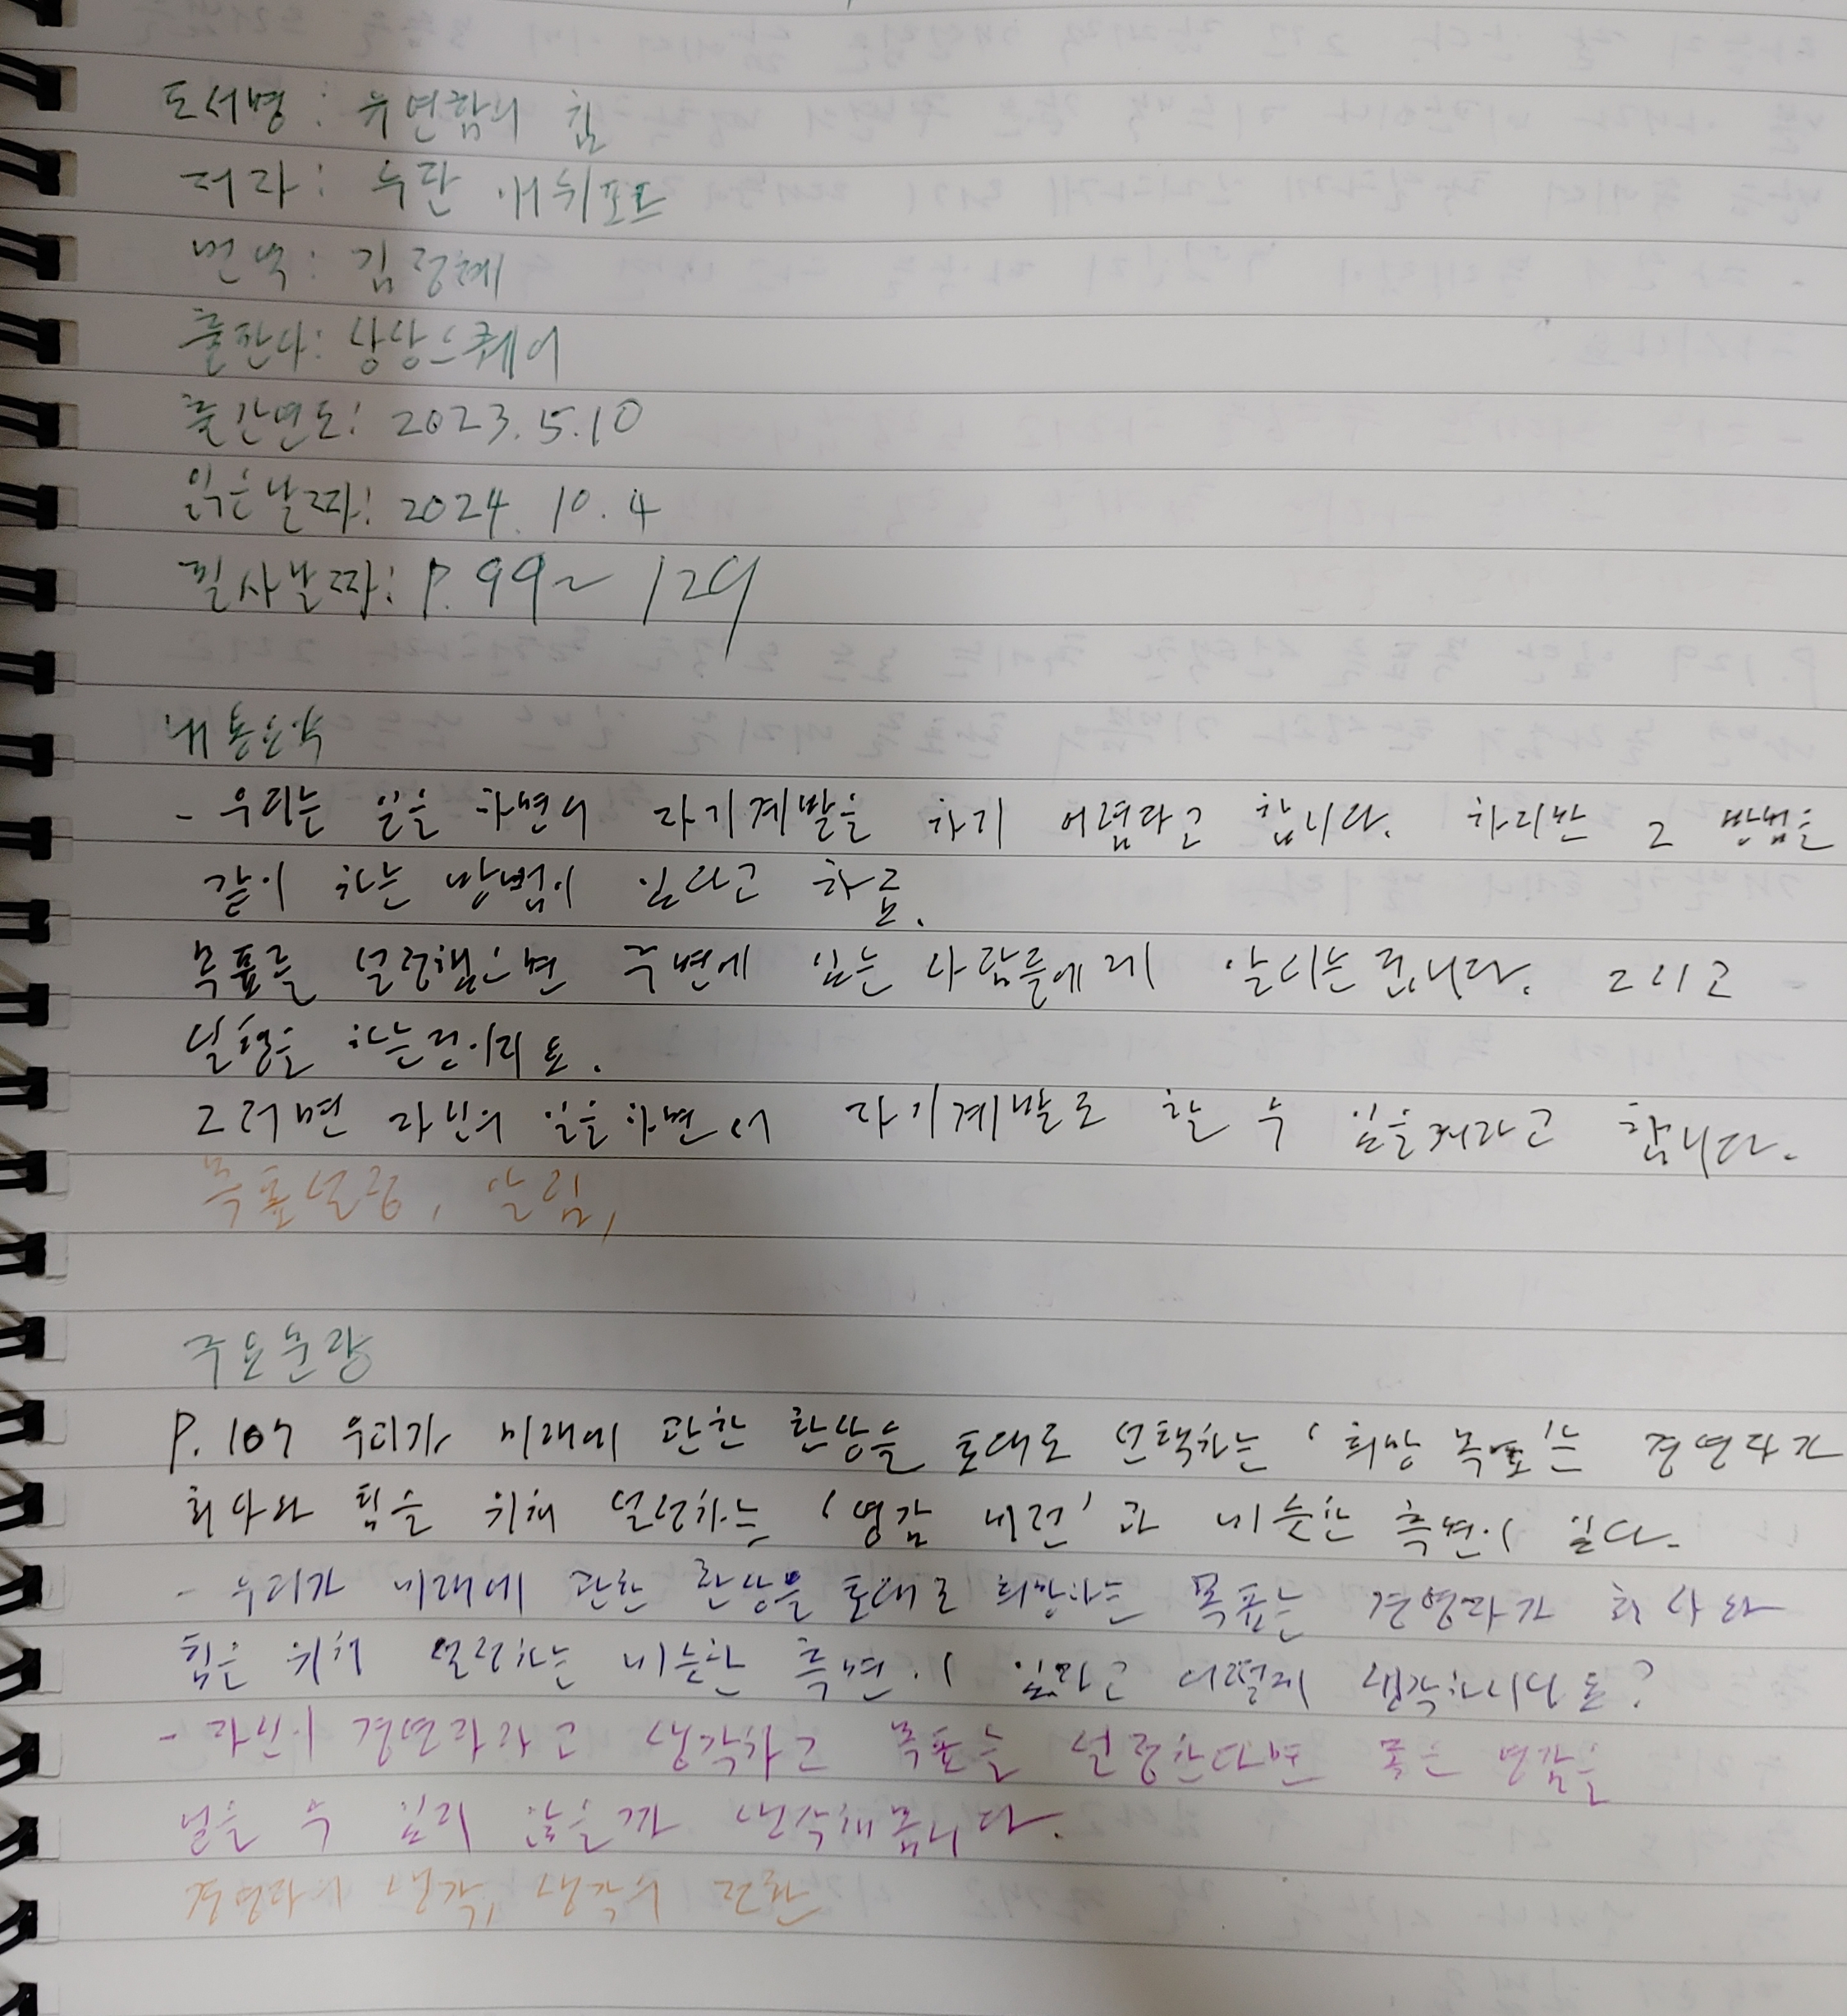 도서명 : 유연함의 힘
저자 : 수잔 애쉬포드
번역 : 김정혜
출판사 : 상상스퀘어
출간년도 : 2023.5.10
읽은날짜 : 2024. 10. 4
필사날짜 : P. 99 ~ 129
내용요약
- 우리는 일을 하면서 자기계발을 하기 어렵다고 합니다. 하지만 그 방법을
같이 하는 방법이 있다고 하죠.
목표를 설정했으면 주변에 있는 사람들에게 알리는겁니다. 그리고
실행을 하는것이죠.
그러면 자신의 일을하면서 자기계발로 할 수 있을거라고 합니다.
목표설정, 알림,
주요문장
P. 107 우리가 미래에 관한 환상을 토대로 선택하는 '희망 목표'는 경영자가
회사와 팀을 위해 설정하는 '영감 비전'과 비슷한 측면이 있다.
- 우리가 미래에 관한 환상을 토대로 희망하는 목표는 경영자가 회사와
팀은 위해 설정하는 비슷한 측면이 있다고 어떻게 생각하시나요?
- 자신이 경영자라고 생각하고 목표를 설정한다면 좋은 영감을
얻을 수 있지 않을까 생각해봅니다.
경영자의 생각, 생각의 전환